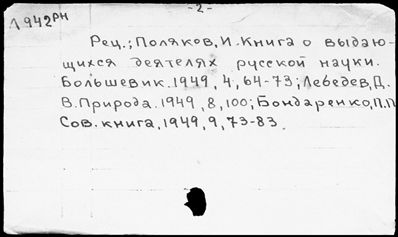 - 2 -
Л 942РН
Рец.; Поляков, И. Книга о выдаю-
щихся деятелях русской науки.
Большевик. 1949, 4, 64-73; Лебедев, Д.
В. Природа. 1949, 8, 100; Бондаренко, П.П.
Сов. книга, 1949, 9, 73-83.